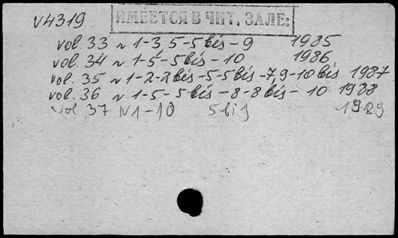 V4319
ИМЕЕТСЯ В ЧИТ. ЗАЛЕ:
vol. 33 N 1-3, 5-5 bis - 9 1985
vol. 34 N 1-5-5 bis - 10 1986
vol. 35 N 1-2-2 bis -5-5 bis -7, 9-10 bis 1987
vol. 36 N 1-5-5 bis -8-8 bis - 10 1988
vol 37 N 1-10 5 bis 1989